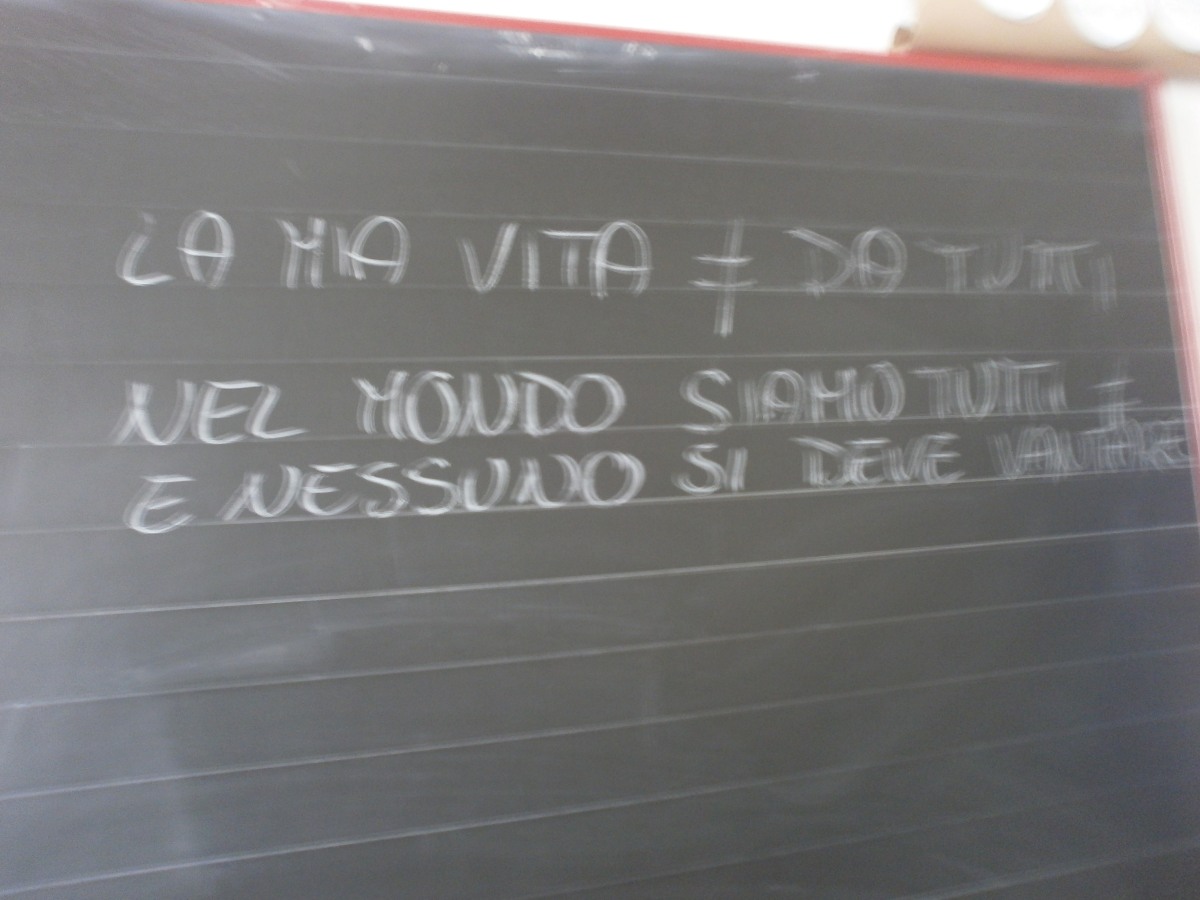 LA MIA VITA ≠ DA TUTTI
NEL MONDO SIAMO TUTTI ≠
E NESSUNO SI DEVE VANTARE